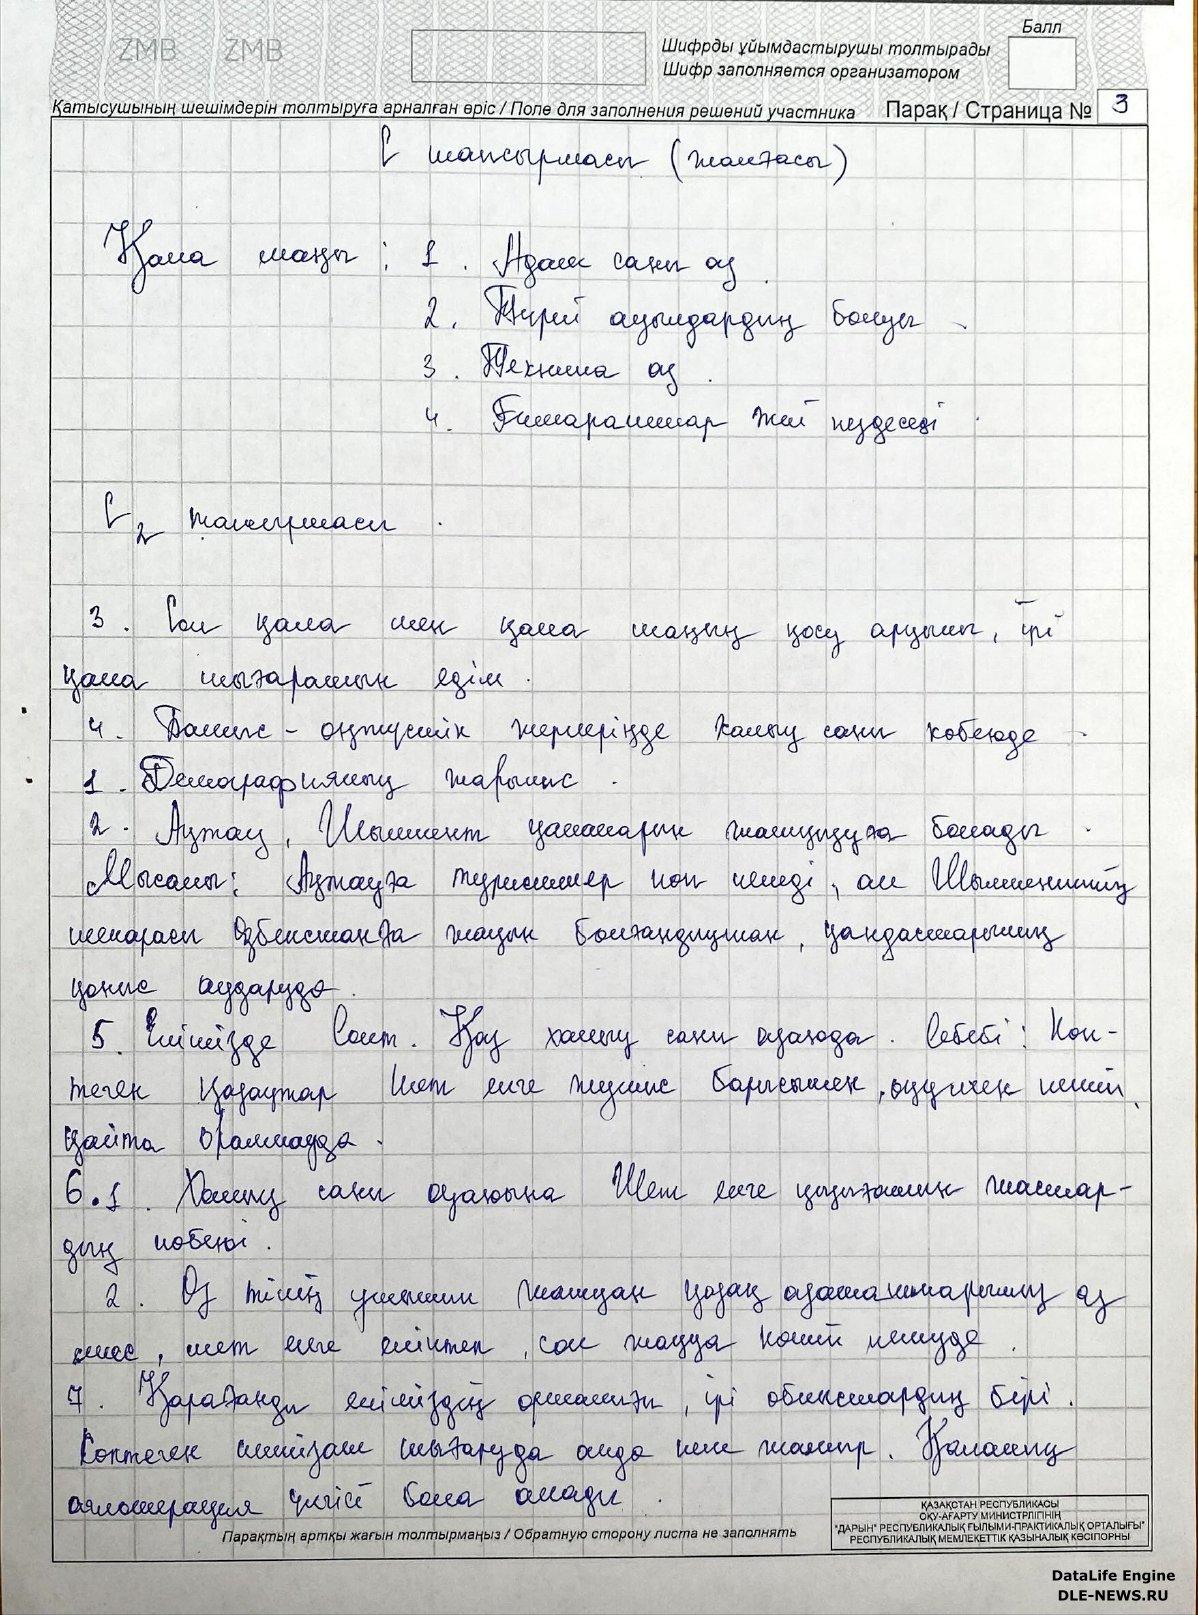 ZMB ZMB
Балл
Шифрды ұйымдастырушы толтырады
Шифр заполняется организатором
Қатысушының шешімдерін толтыруға арналған өріс / Поле для заполнения решений участника Парақ / Страница № 3
С тапсырмасы (жалғасы)
Қала маңы : 1. Адам саны аз
2. Түрлі ауылдардың болуы.
3. Техника аз.
4. Ғимараттар жиі кездеседі.
С2 тапсырмасы.
3. Сол қала мен қала маңын қосу арқылы, ірі
қала шығаратын едім.
4. Батыс - оңтүстік жерлеріңде халық саны көбеюде.
1. Демографиялық жарылыс.
2. Ақтау, Шымкент қалаларын жатқызуға болады.
Мысалы: Ақтауға туристер көп келеді, ал Шымкенттің
шекарасы Өзбекстанға жақын болғандықтан, қандастарымыз
қоныс аударуда.
5. Елімізде Солт. Қаз халық саны азаюда. Себебі: Көп-
теген қазақтар шет елге жұмыс барысымен, оқу мен кетіп,
қайта оралмауда.
6.1. Халық саны азаюына Шет елге қызығатын жастар-
дың көбеюі.
2. Өз тілінің ұмытып жатқан қазақ азаматтарының аз
емес, шет елге еліктеп, сол жаққа көшіп кетуде.
7. Қарағанды еліміздің орталығы, ірі облыстардың бірі.
Көптеген шикізат шығаруда алда келе жатыр. Қаланың
агломерация үлгісі бола алады.
Парақтың артқы жағын толтырмаңыз / Обратную сторону листа не заполнять
ҚАЗАҚСТАН РЕСПУБЛИКАСЫ
ОҚУ-АҒАРТУ МИНИСТРЛІГІНІҢ
"ДАРЫН" РЕСПУБЛИКАЛЫҚ ҒЫЛЫМИ-ПРАКТИКАЛЫҚ ОРТАЛЫҒЫ"
РЕСПУБЛИКАЛЫҚ МЕМЛЕКЕТТІК ҚАЗЫНАЛЫҚ КӘСІПОРНЫ
DataLife Engine
DLE-NEWS.RU